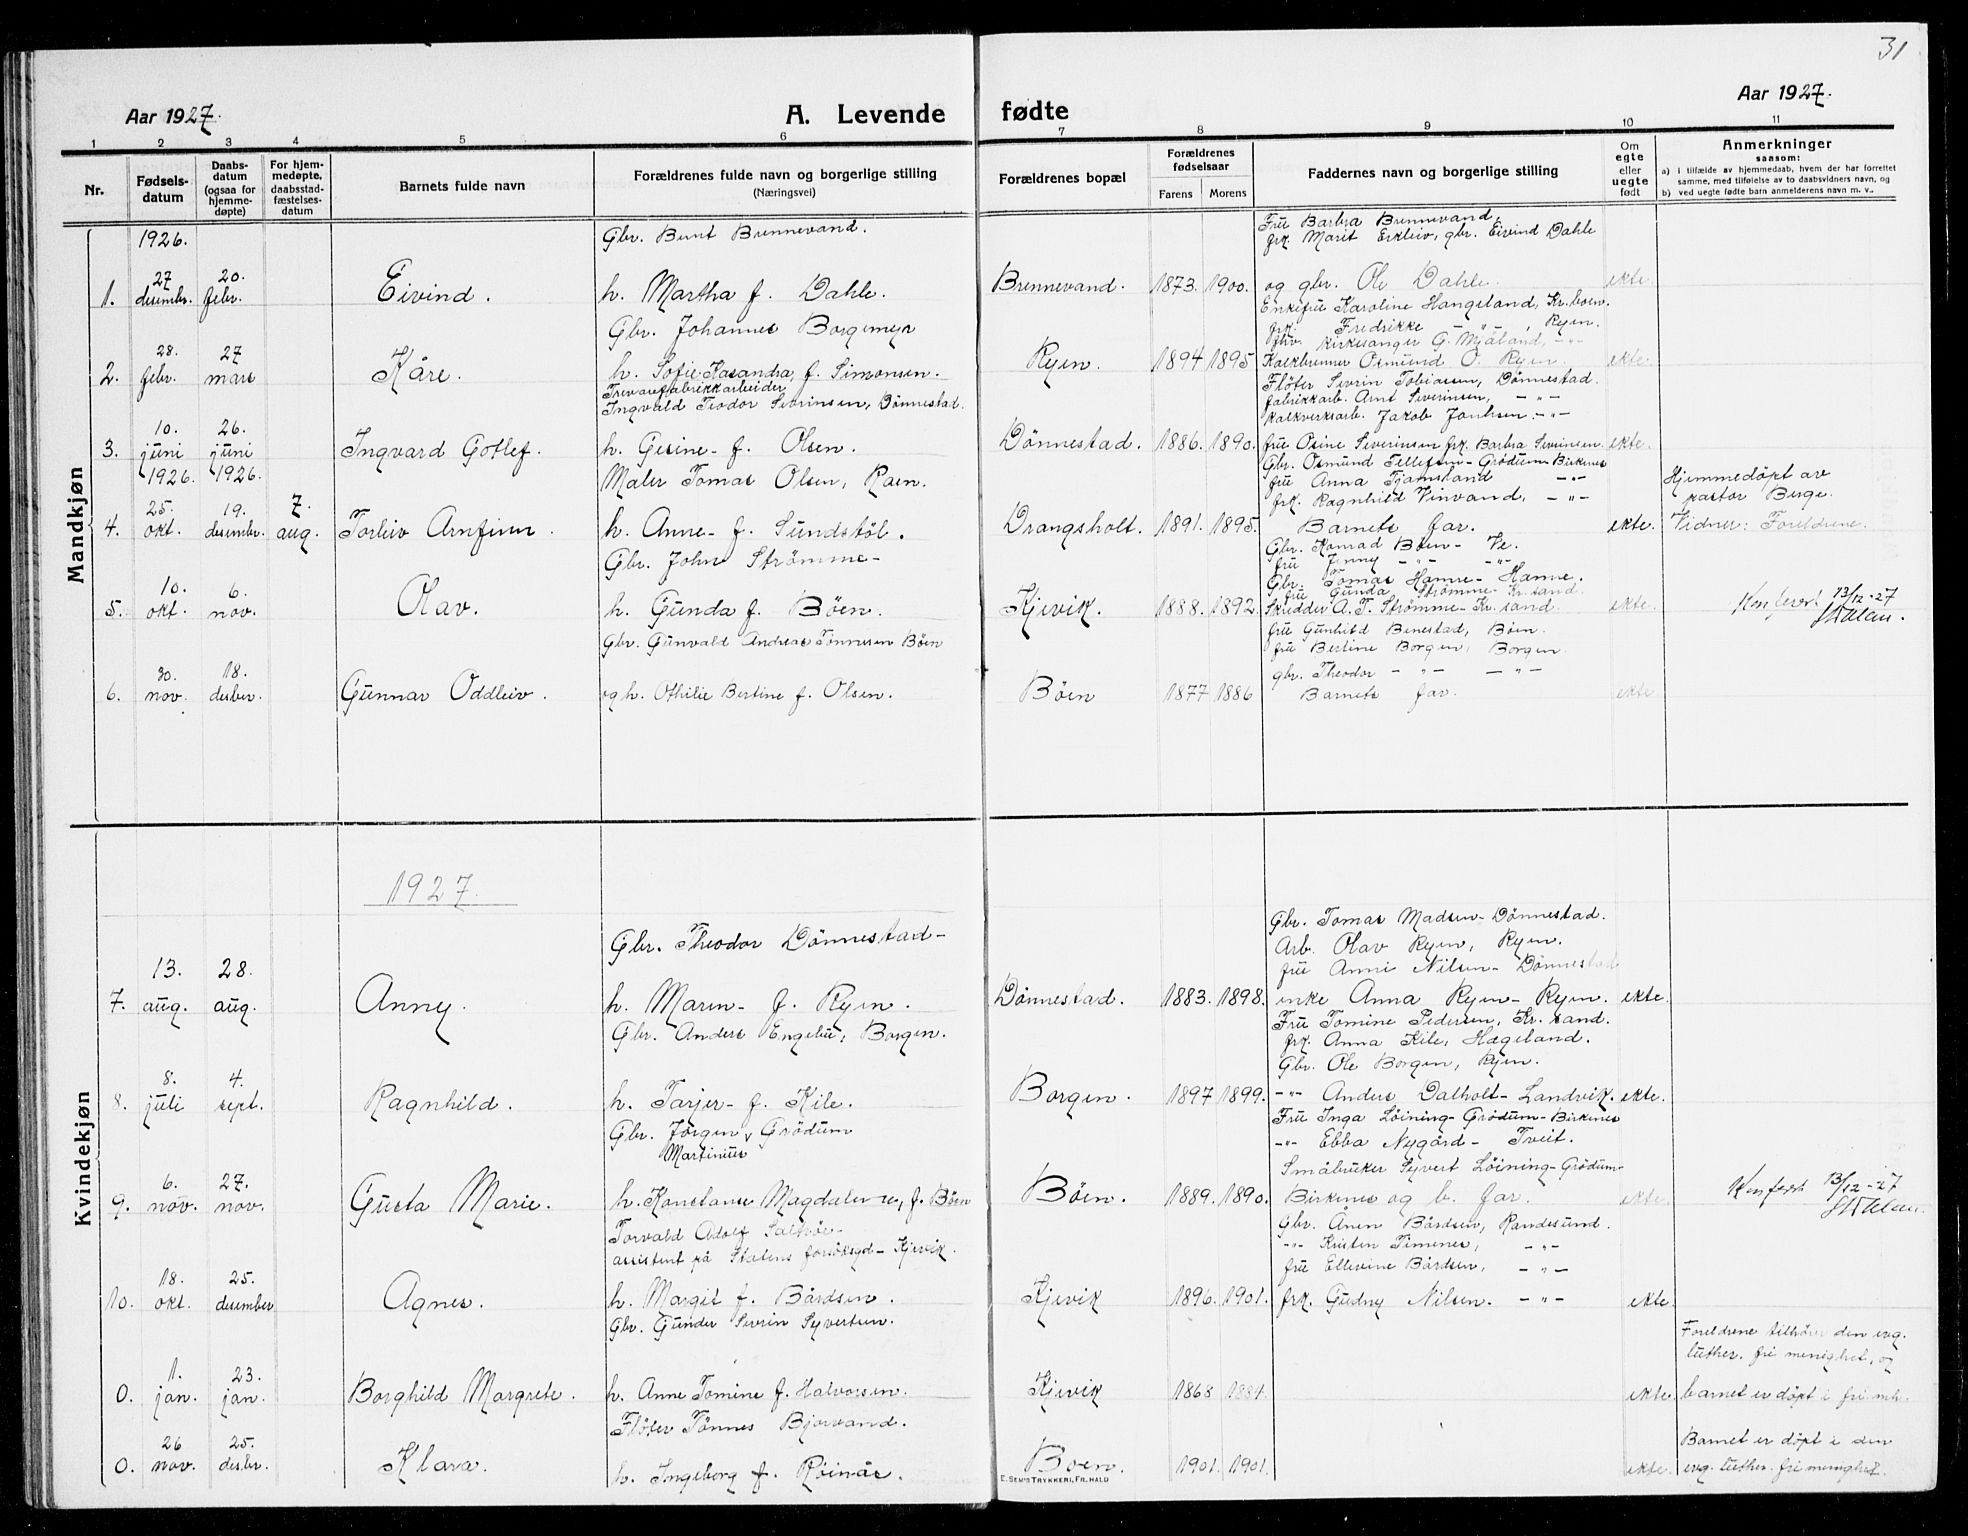 31
Aar 1927.
A. Levende fødte
Aar 1927.
1 2 3 4 5 6 7 8 9 10 11
Nr.
Fødsels-
datum
Daabs-
datum
(ogsaa for
hjemme-
døpte)
For hjem-
medøpte,
daabsstad-
fæstelses-
datum
Barnets fulde navn
Forældrenes fulde navn og borgerlige stilling
(Næringsvei)
Forældrenes bopæl
Forældrenes
fødselsaar
Farens Morens
Faddernes navn og borgerlige stilling
Om
egte
eller
uegte
født
Anmerkninger
saasom:
a) i tilfælde av hjemmedaab, hvem der har forrettet
samme, med tilføielse av to daabsvidners navn, og
b) ved uegte fødte barn anmelderens navn m. v..
Mandkjøn
1926.
Gbr. Bent Brennevand.
Fru Barbra Brennevand,
frk. Marit Erkleiv, gbr. Eivind Dahle
27 20.
1. desembr. febr. Eivind. h. Martha f. Dahle. Brennevand. 1873. 1900. og gbr. Ole Dahle. ekte.
Gbr. Johannes Borgemyr
Enkefru Karoline Hangeland, Kr.boen.
frk. Fredrikke -"- , Ryen.
fhv. kirkesanger G. Mjåland, -"-
28. 27
2. febr. mars Kåre. h. Sofie Kasandra, f. Simonsen. Ryen. 1894 1895 Kalkbrenner Osmund O. Ryen. ekte.
Trevarefabrikkarbeider
Ingvald Teodor Sevrinsen, Dønnestad.
Fløter Sevrin Tobiassen, Dønnestad.
fabrikkarb. Arnt Severinsen, -"-
kalkverksarb. Jakob Jonhsen -"-
10. 26.
3. juni juni Ingvard Gotlef. h. Gesine f. Olsen. Dønnestad. 1886. 1890. fru Osine Severinsen frk. Barbra Severinsen. ekte.
1926. 1926.
Maler Tomas Olsen, Raen.
Gbr. Osmund Tellefsen - Grødum - Birkenes
fru Anna Tjamsland -"-
frk. Ragnhild Vinvand, -"-
Hjemmedøpt av
pastor Berge.
25. 19. 7.
4. okt. desembr. aug. Torleiv Arnfinn h. Anne f. Sundstøl. Drangsholt. 1891. 1895. Barnets far. ekte. Vidner: Foreldrene.
Gbr. John Strømme -
Gbr. Konrad Bøen - Ve.
fru Jenny -"- -"-
Gbr. Tomas Hamre - Hamre.
fru Gunda Strømme - Kr.sand.
10. 6.
5. okt. nov. Olav. h. Gunda f. Bøen. Kjevik. 1888. 1892. Skredder A. T. Strømme - Kr.sand. ekte. 13/12-27
Gbr. Gunvald Andreas Tønnesen Bøen
fru Gunhild Benestad, Bøen.
fru Bertine Borgen, Borgen.
gbr. Theodor -"- -"-
30. 18.
6. nov. desbr. Gunnar Oddleiv. og h. Othilie Bertine f. Olsen. Bøen 1877 1886 Barnets far. ekte.
Kvindekjøn
1927.
Gbr. Theodor Dønnestad -
Gbr. Tomas Madsen - Dønnestad.
Arb. Olav Ryen, Ryen.
fru Anni Nilsen - Dønnestad
13. 28.
7. aug. aug. Anny. h. Maren - f. Ryen. Dønnestad. 1883. 1898. enke Anna Ryen - Ryen. ekte.
Gbr. Anders Engebu, Borgen.
Fru Tomine Pedersen, Kr. sand.
frk. Anna Kile, Hægeland.
Gbr. Ole Borgen, Ryen.
8. 4.
8. juli sept. Ragnhild. h. Tarjer - f. Kile. Borgen. 1897 1899. -"- Anders Dalholt - Landvik. ekte.
Gbr. Jørgen Grødum
Martinius
Fru Inga Løining - Grødum - Birkenes
-"- Ebba Nygård - Tveit.
Småbruker Syvert Løining - Grødum -
6. 27.
9. nov. nov. Gusta Marie. h. Konstanse Magdalene, f. Bøen Bøen. 1889. 1890. Birkenes og b. far. ekte. 13/12-27
Torvald Adolf
assistent på Statens forsøksgd - Kjevik.
Gbr. Ånen Bårdsen, Randesund.
-"- Kristen Timenes, -"-
fru Ellevine Bårdsen, -"-
18. 25.
10. okt. desember Agnes. h. Margit f. Bårdsen. Kjevik 1896. 1901. frk. Gudny Nilsen. -"- ekte.
Gbr. Gunder Sevrin Syvertsen.
Foreldrene tilhører den evg.
luther. fri menighet, og
1. 23.
0. jan. jan. Borghild Margrete. h. Anne Tomine f. Halvorsen. Kjevik 1868 1884. ekte. barnet er døpt i fri mh.
Fløter Tønnes Bjorvand.
Barnet er døpt i den
26 25.
0. nov. desbr. Klara. h. Ingeborg f. Røinås. Boen. 1901. 1901. ekte. evg. luther. fri menighet.
E. SEM'S TRYKKERI, FR.HALD